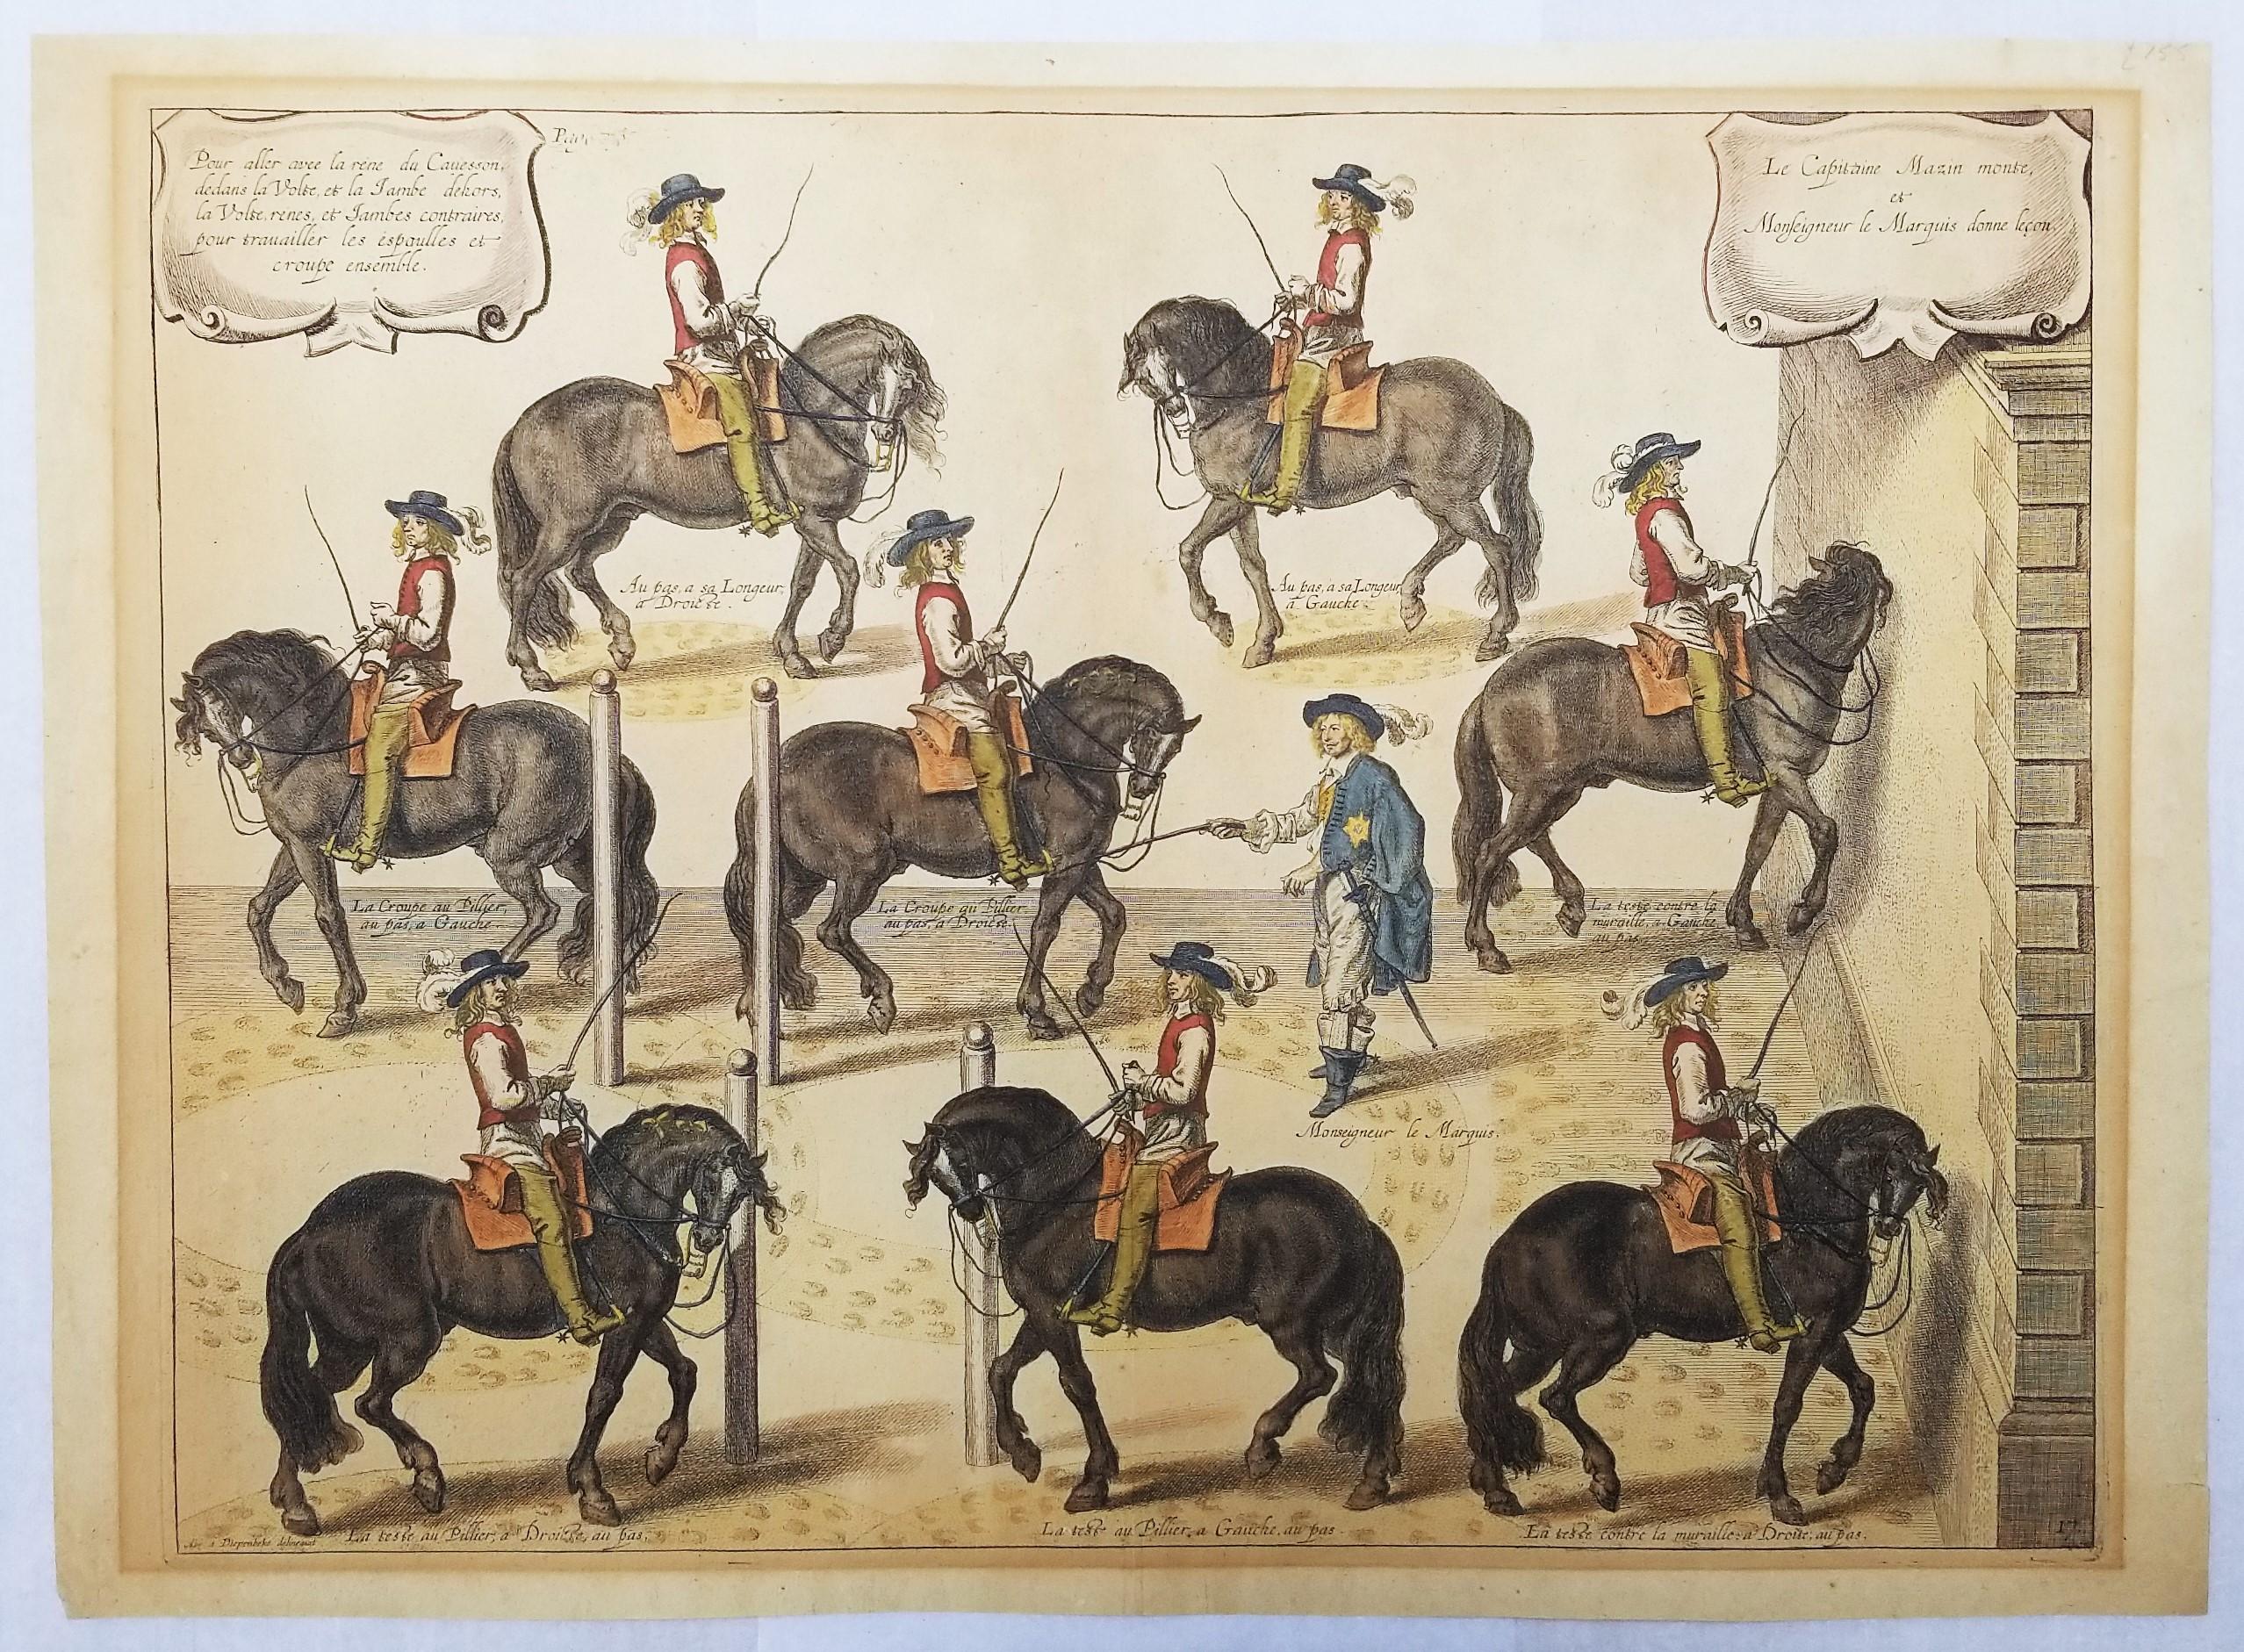 Pour aller avec la rene du Cavesson,
dedans la Volte, et la Jambe dehors,
la Volte, renes, et Jambes contraires,
pour travailler les espoulles et
croupe ensemble.
Le Capitaine Mazin monte,
et
Monseigneur le Marquis donne leçon
Au pas, a sa Longeur,
a Droicte.
Au pas, a sa Longeur,
a Gauche.
La Croupe au Pillier,
au pas, a Gauche.
La Croupe au Pillier,
au pas, a Droicte.
La teste contre la
muraille, a Gauche
au pas.
Monseigneur le Marquis.
La teste au Pillier, a Droicte, au pas.
La teste au Pillier, a Gauche, au pas.
La teste contre la muraille: a Droite, au pas.
17